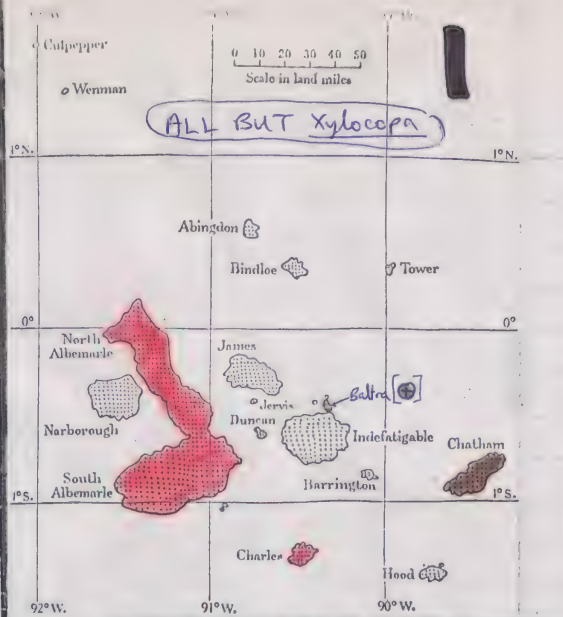 Culpepper
0 10 20 30 40 50
Scale in land miles
Wenman
ALL BUT Xylocopa
1°N.
1°N.
Abingdon
Bindloe
Tower
0°
0°
North
Albemarle
James
Baltra
Jervis
Narborough
Duncan
Indefatigable
Chatham
South
Albemarle
Barrington
1°S.
1°S.
Charles
Hood
92°W.
91°W.
90°W.